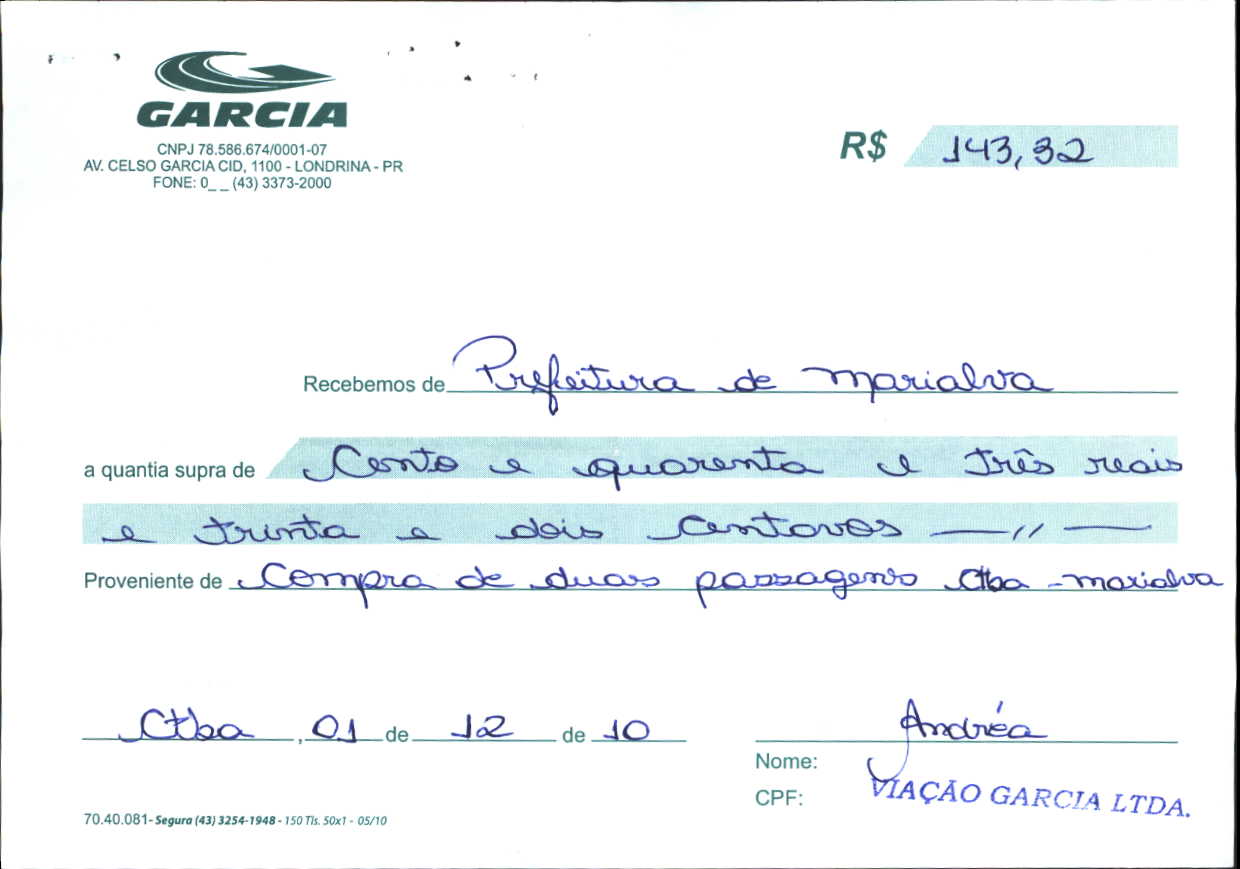 GARCIA
CNPJ 78.586.674/0001-07
AV. CELSO GARCIA CID, 1100 - LONDRINA - PR
FONE: 0_ _ (43) 3373-2000
R$ 143,32
Recebemos de Prefeitura de marialva
a quantia supra de Cento e quarenta e três reais
e trinta e dois centavos —//—
Proveniente de Compra de duas passagens Ctba - marialva
Ctba, 01 de 12 de 10
Andréa
Nome:
CPF:
VIAÇÃO GARCIA LTDA.
70.40.081- Segura (43) 3254-1948 - 150 Tls. 50x1 - 05/10